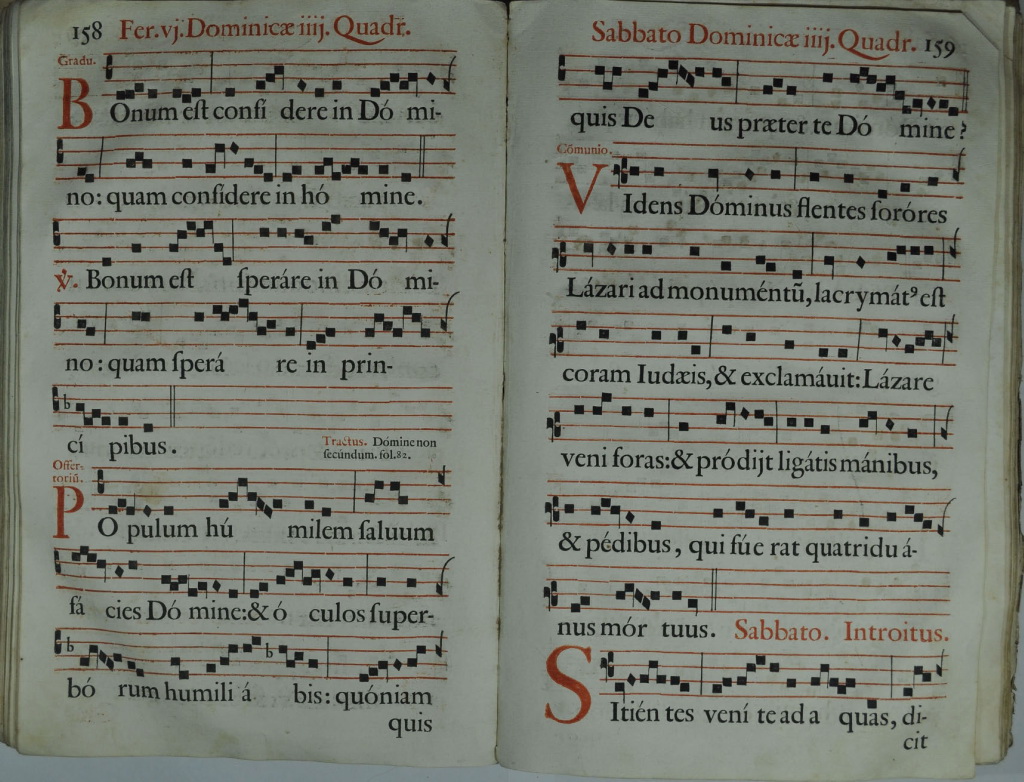 158 Fer.vj.Dominicæ iiij. Quadr.
Gradu.
BOnum eſt confi dere in Dó mi-
no: quam confidere in hó mine.
℣. Bonum eſt ſperáre in Dó mi-
no: quam ſperá re in prin-
cí pibus.
Tractus. Dómine non
ſecúndum. fol.82.
Offer-
toriũ.
POpulum hú milem ſaluum
fá cies Dó mine:& ó culos ſuper-
bó rum humili á bis: quóniam
quis
Sabbato Dominicæ iiij. Quadr. 159
quis De us præter te Dó mine?
Cõmunio.
VIdens Dóminus flentes ſoróres
Lázari ad monuméntũ, lacrymát⁹ eſt
coram Iudæis, & exclamáuit: Lázare
veni foras: & pródijt ligátis mánibus,
& pédibus, qui fúe rat quatridu á-
nus mór tuus. Sabbato. Introitus.
SItién tes vení te ad a quas, di-
cit